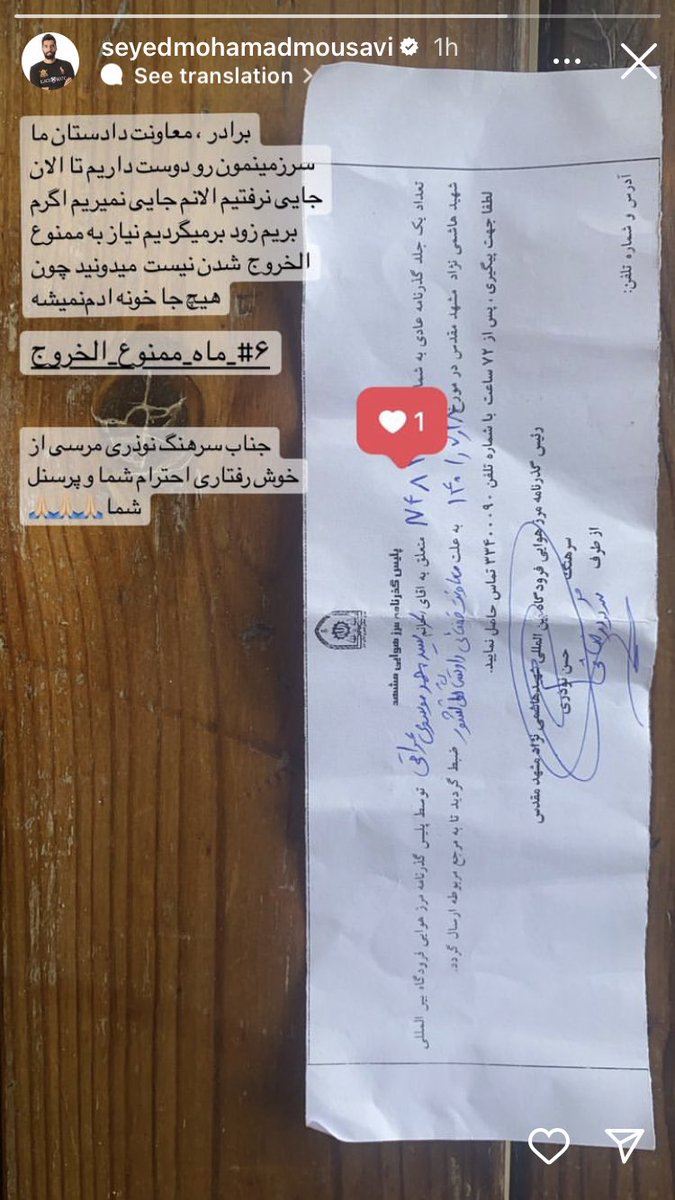 seyedmohamadmousavi 1h
See translation >
برادر ، معاونت دادستان ما
سرزمینمون رو دوست داریم تا الان
جایی نرفتیم الانم جایی نمیریم اگرم
بریم زود برمیگردیم نیاز به ممنوع
الخروج شدن نیست میدونید چون
هیچ جا خونه ادم نمیشه
#۶_ماه_ممنوع_الخروج
جناب سرهنگ نوذری مرسی از
خوش رفتاری احترام شما و پرسنل
شما 🙏🏻🙏🏻🙏🏻🙏🏻
1
پلیس گذرنامه مرز هوایی مشهد
تعداد یک جلد گذرنامه عادی به شما متعلق به آقای/خانم سید محمد موسوی عراقی توسط پلیس گذرنامه مرز هوایی فرودگاه بین المللی
شهید هاشمی نژاد مشهد مقدس در مورخ به علت معاونت قضائی دادستان کل کشور ضبط گردید تا به مرجع مربوطه ارسال گردد.
لطفا جهت پیگیری ، پس از ۷۲ ساعت با شماره تلفن ۳۳۴۰۰۰۹۰ تماس حاصل نمایید.
رئیس گذرنامه مرز هوایی فرودگاه بین المللی شهید هاشمی نژاد مشهد مقدس
سرهنگ حسن نوذری
از طرف
آدرس و شماره تلفن: